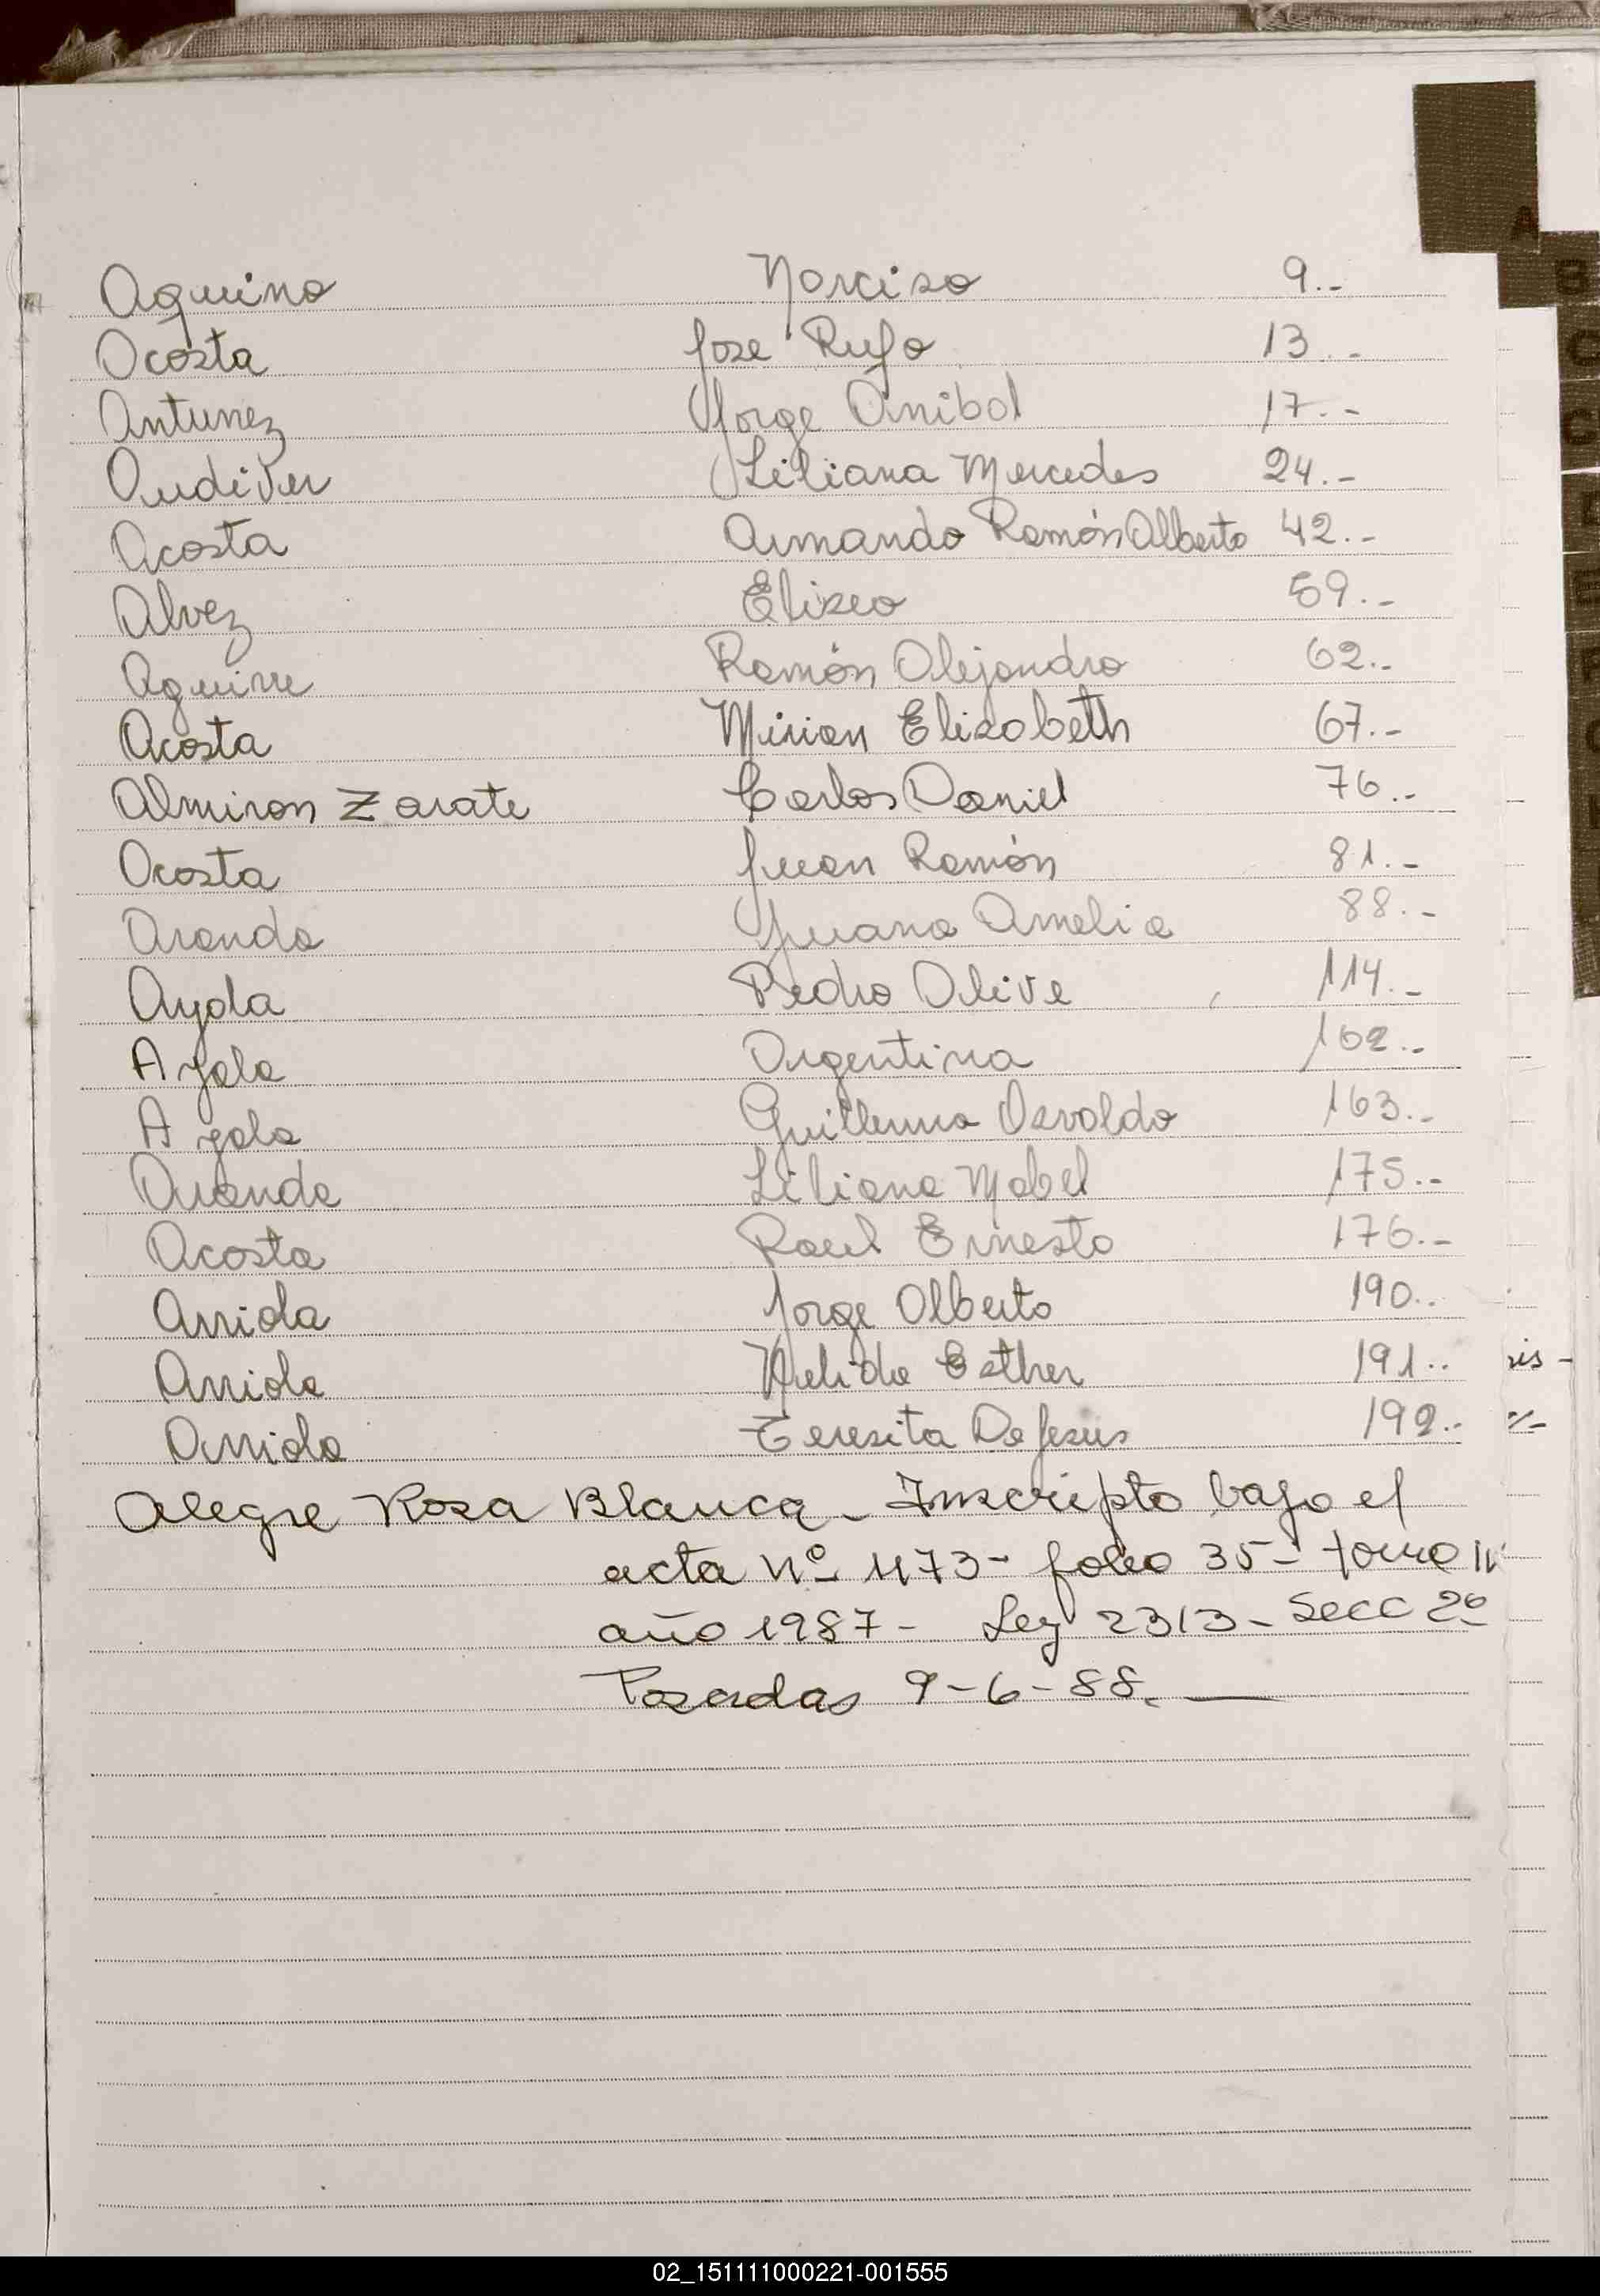 A
Aquino Narciso 9.-
B
Acosta Jose Rufo 13.-
Antunez Jorge Anibal 17.-
C
Audiver Liliana Mercedes 24.-
Acosta Armando Ramón Alberto 42.-
Alvez Eliseo 59.-
Aguirre Ramón Alejandro 62.-
Acosta Mirian Elizabeth 67.-
Almiron Zarate Carlos Daniel 76.-
Acosta Juan Ramón 81.-
Aranda Juana Amelia 88.-
Ayala Pedro Olive 114.-
Ayala Argentina 162.-
Ayala Guillermo Osvaldo 163.-
Aranda Liliana Mabel 175.-
Acosta Raul Ernesto 176.-
Arriola Jorge Alberto 190.-
Arriola Nelida Esther 191.-
Arriola Teresita De Jesus 192.-
Alegre Rosa Blanca - Inscripto bajo el
acta Nº 1173 - folio 35 - tomo
año 1987 - Ley 2313 - Secc 2º
Posadas 9-6-88.
02_151111000221-001555